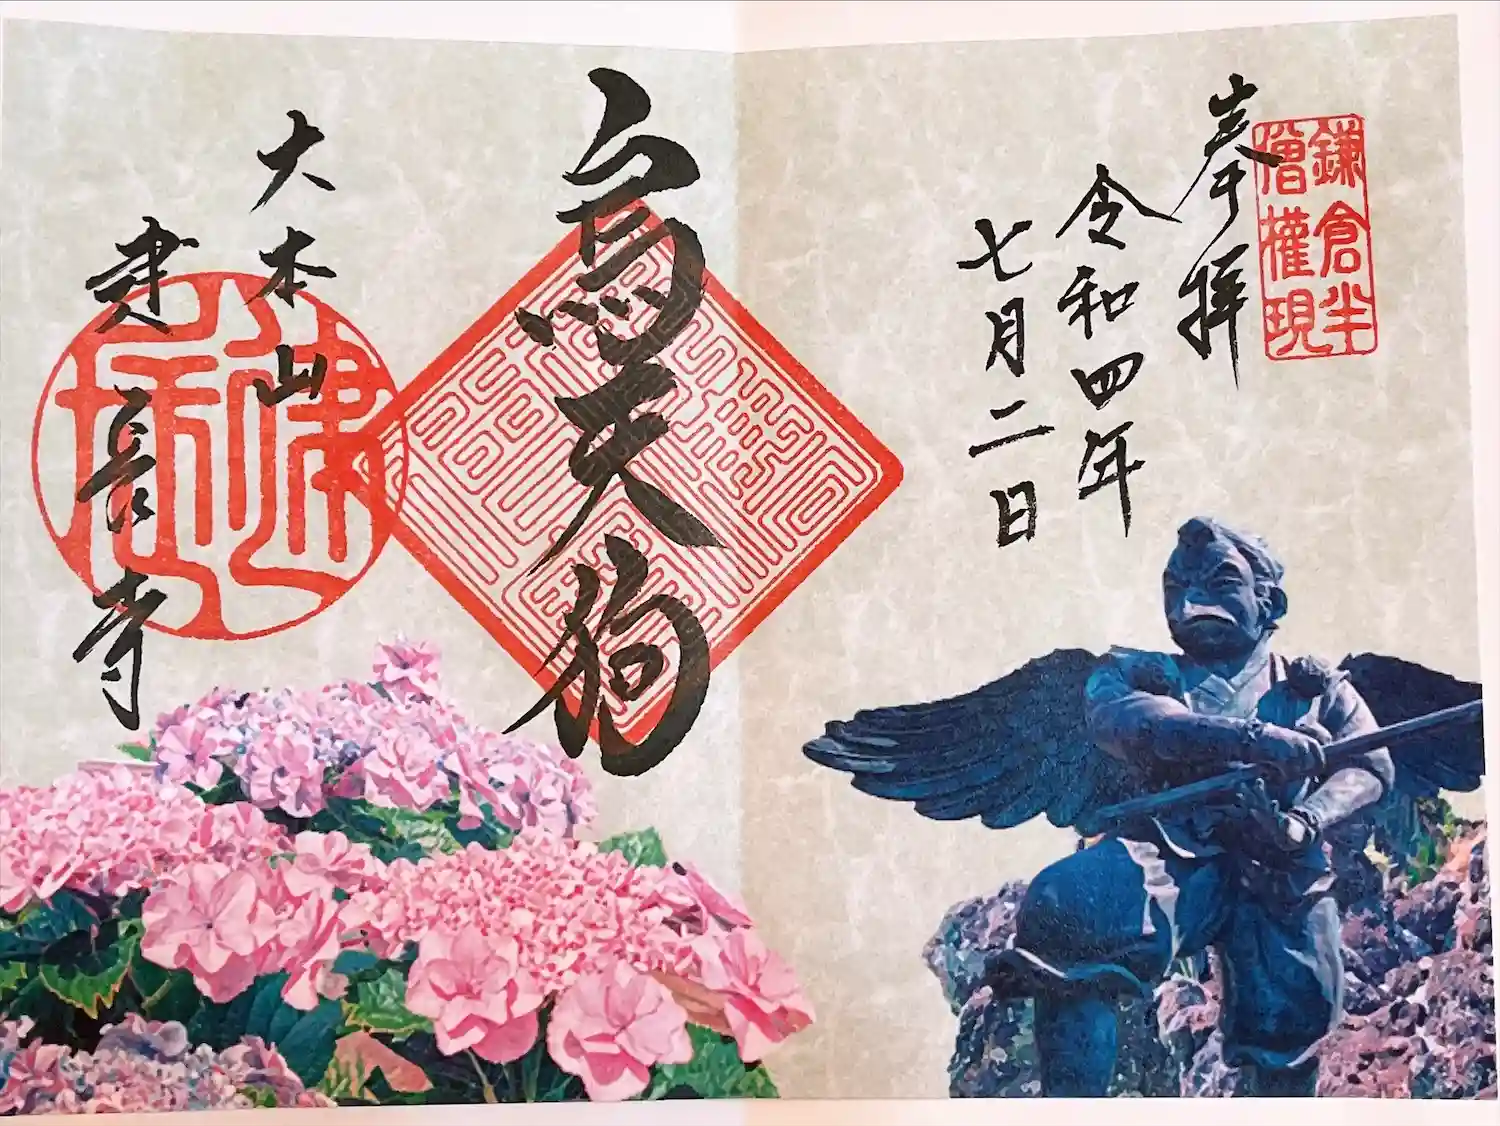 鎌倉半
僧權現
奉拝
令和四年
七月二日
烏天狗
大本山
建長寺
建長